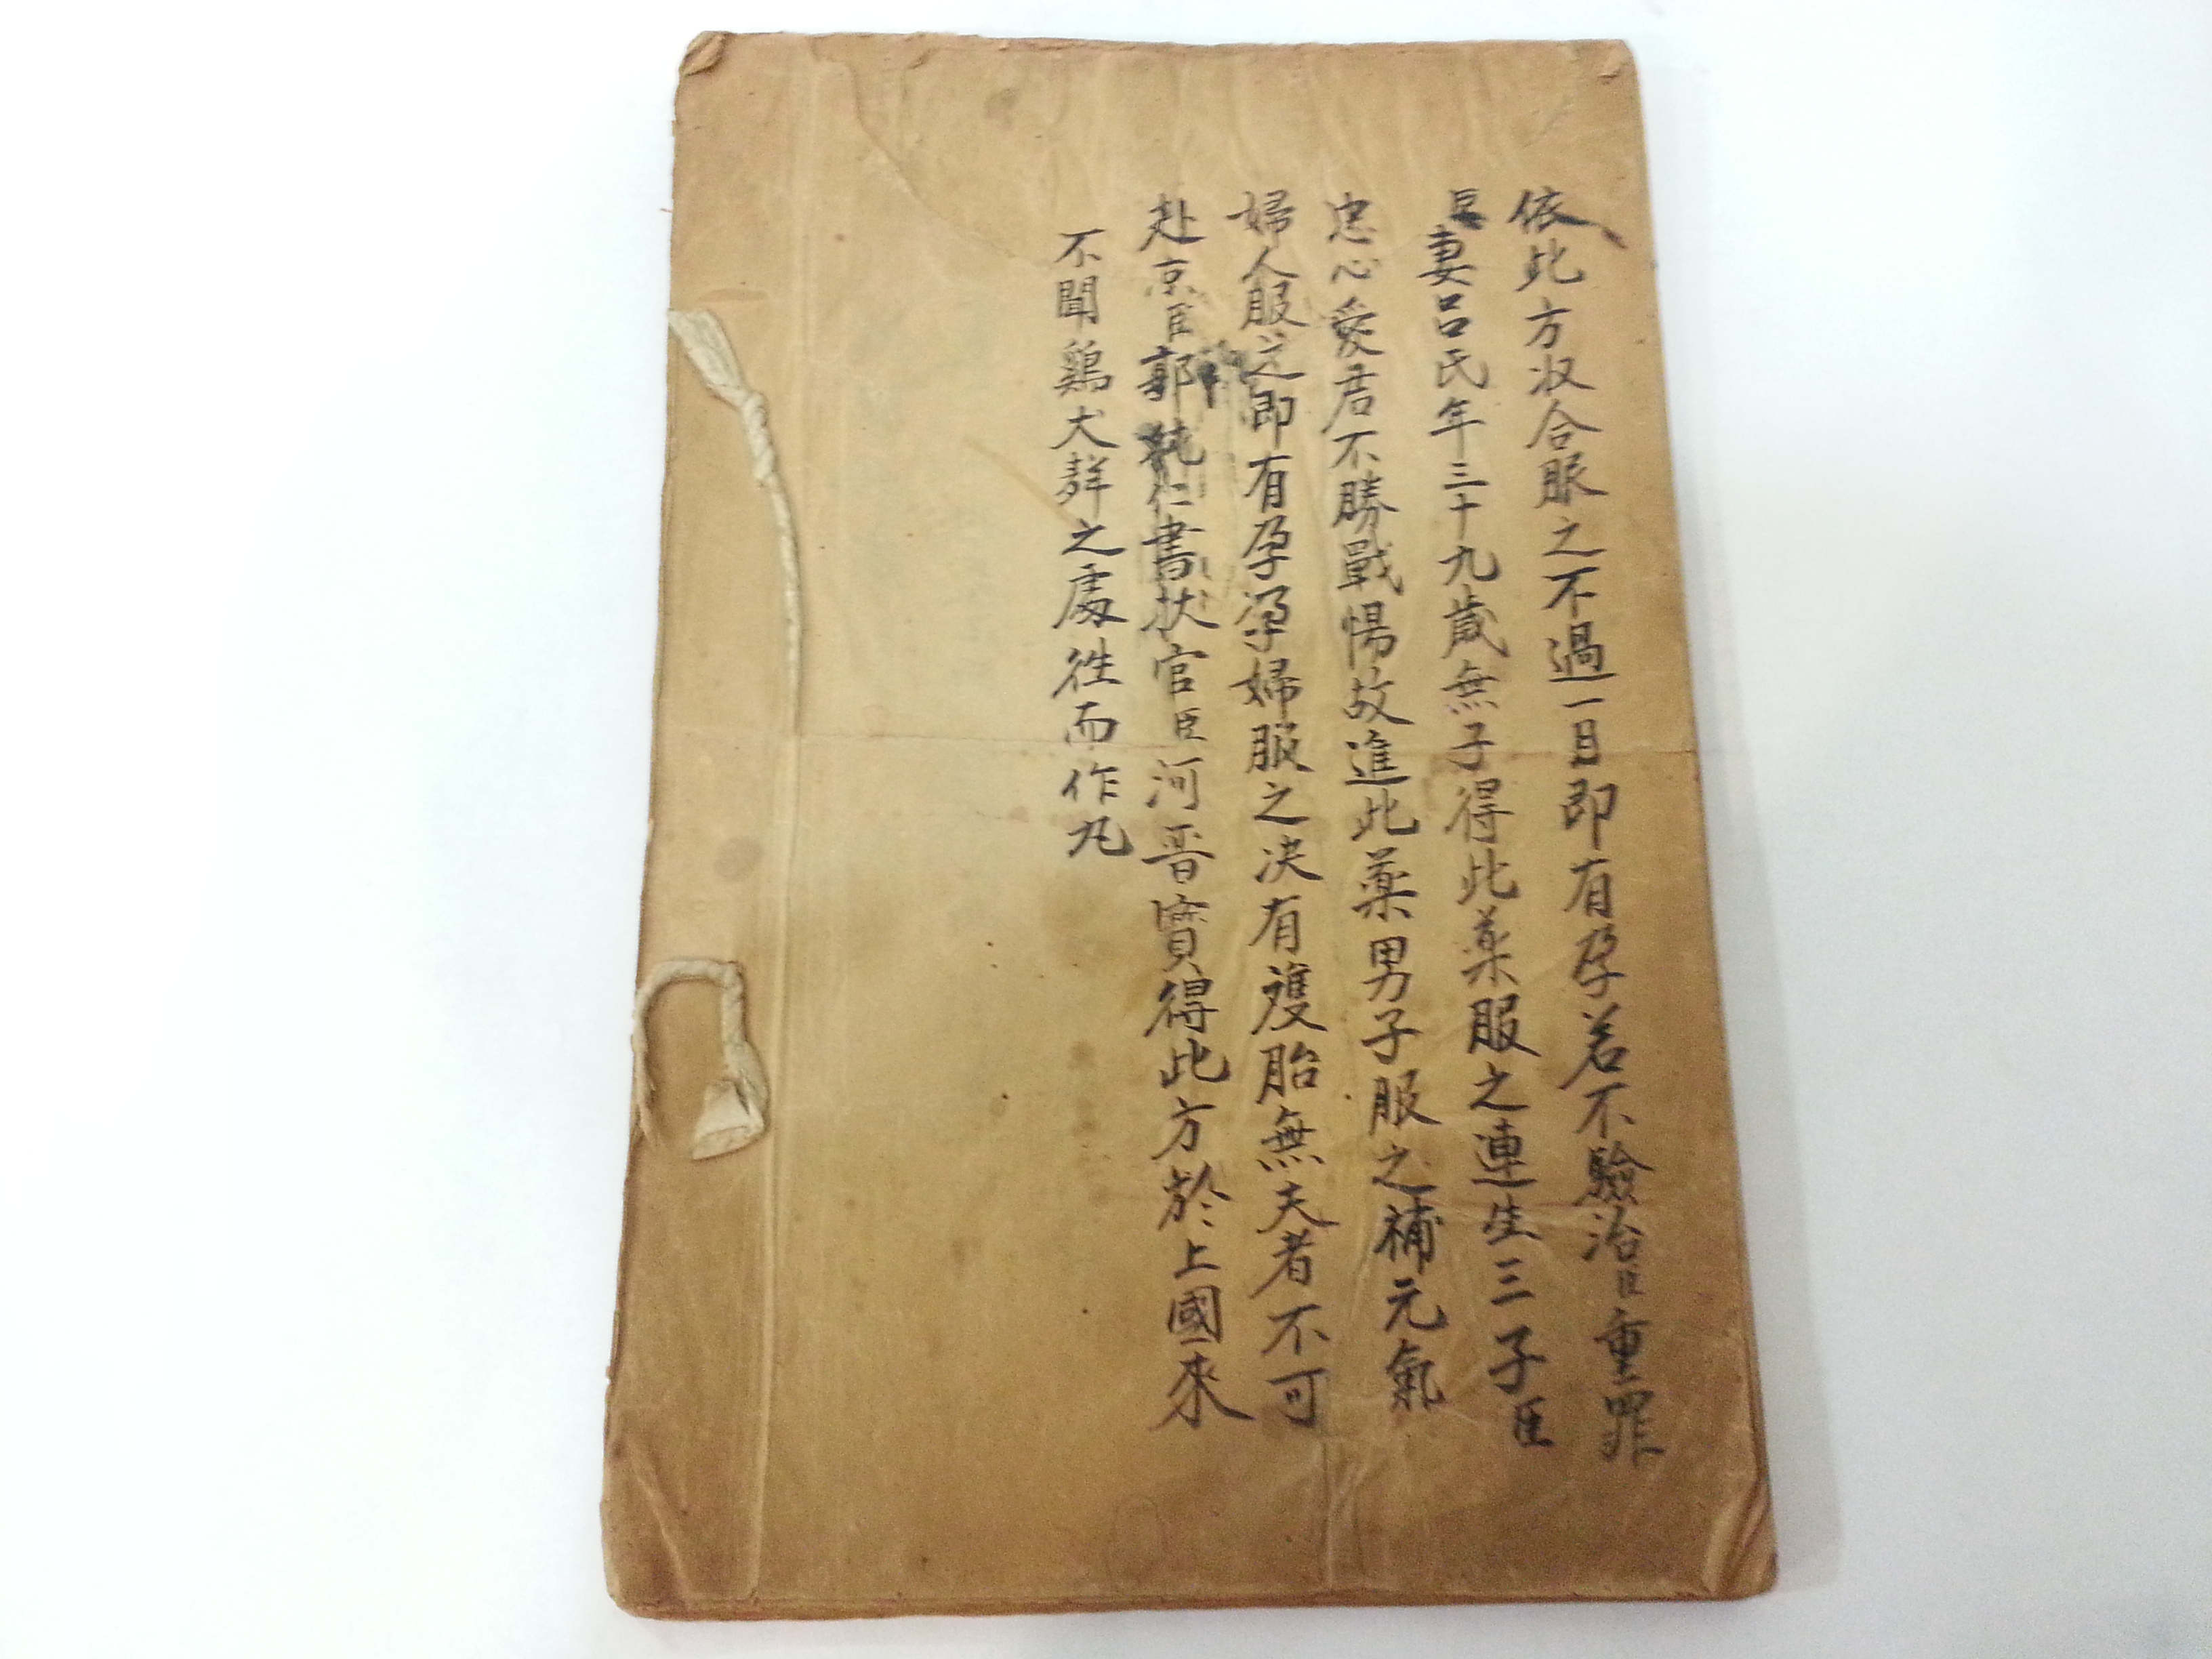 依此方收合服之不過一日即有孕若不驗治臣重罪
臣妻呂氏年三十九歲無子得此藥服之連生三子臣
忠心愛君不勝戰惕故進此藥男子服之補元氣
婦人服之即有孕孕婦服之决有護胎無夫者不可
赴京臣郭純仁書狀官臣河晋寶得此方於上國來
不聞鷄犬群之處往而作丸